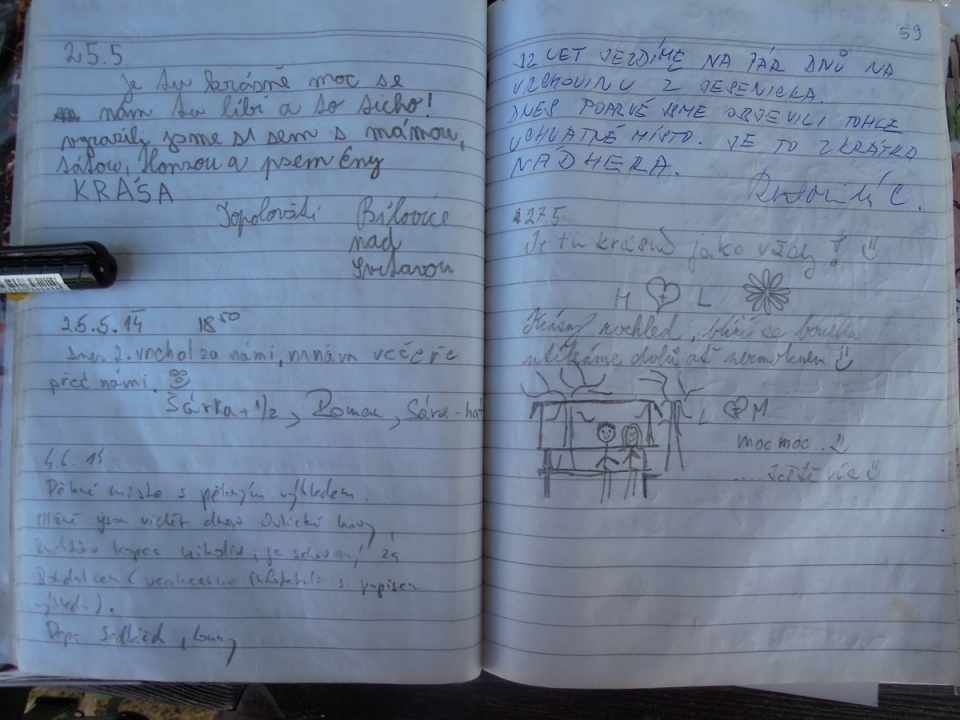 25.5
Je tu krásně moc se
nám tu líbí a to ticho!
vyrazily jsme si sem s mámou,
tátou, Honzou a psem Eny
KRÁSA
Topolováti Bílovice
nad
Svitavou
25.5.14 18 50
Dnes 2. vrchol za námi, mňam večeře
před námi.
Šárka + 1/2, Roman, Sára - ha
4.6. 14
Pěkné místo s pěkným výhledem.
jsou vidět dnes Orlické hory,
kopec nikoliv, je schovaný za
( s popisem
výhledu).
Pepa
59
12 LET JEZDÍME NA PÁR DNŮ NA
VRCHOVINU Z JESENICKA.
DNES POPRVÉ JSME OBJEVILI TOHLE
ÚCHVATNÉ MÍSTO. JE TO ZKRÁTKA
NÁDHERA.
C.
27.5.
Je tu krásně jako vždy!
M L
Krásný rozhled, blíží se bouřka
utíkáme dolů ať nezmoknem
L M
moc moc..
.... ještě víc